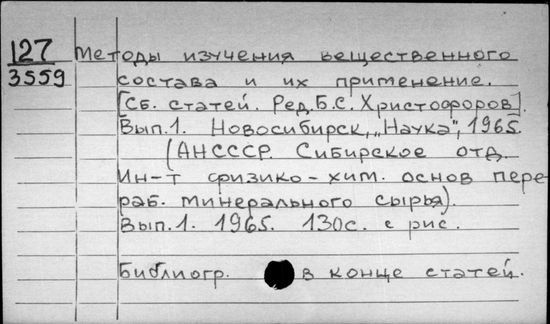 127 Методы изучения вещественного
3559 состава и их применение.
[Сб. статей. Ред. Б.С. Христофоров].
Вып.1. Новосибирск, „Наука", 1965.
(АНСССР. Сибирское отд.
Ин-т физико-хим. основ пере-
раб. минерального сырья).
Вып.1. 1965. 130с. с рис.
Библиогр. в конце статей.